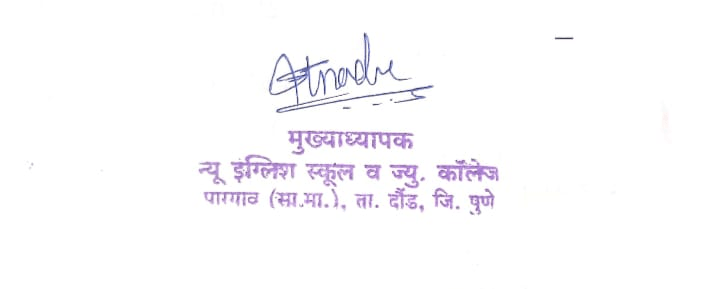 मुख्याध्यापक
न्यू इंग्लिश स्कूल व ज्यु. कॉलेज
पारगाव (सा.मा.), ता. दौंड, जि. पुणे